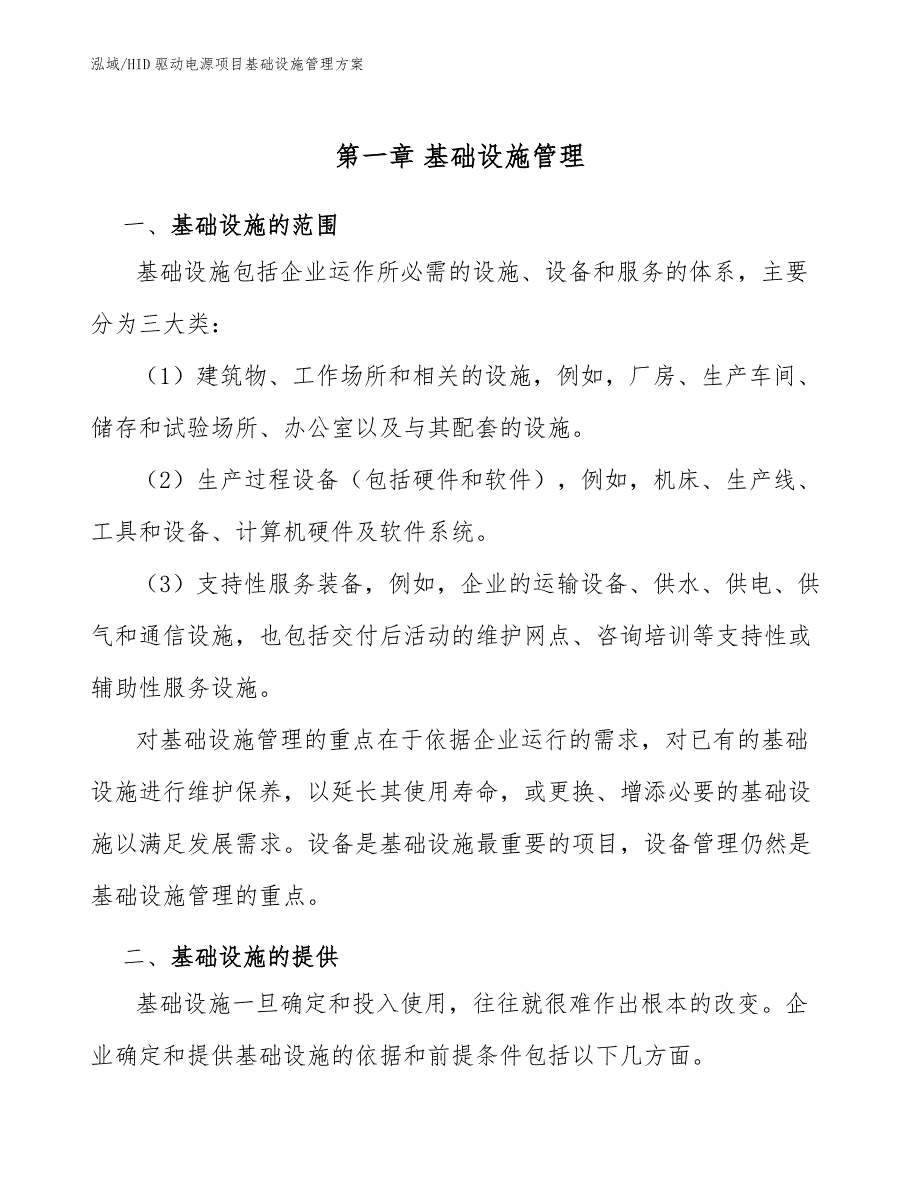 泓域/HID驱动电源项目基础设施管理方案
第一章 基础设施管理
一、基础设施的范围
基础设施包括企业运作所必需的设施、设备和服务的体系，主要
分为三大类：
（1）建筑物、工作场所和相关的设施，例如，厂房、生产车间、
储存和试验场所、办公室以及与其配套的设施。
（2）生产过程设备（包括硬件和软件），例如，机床、生产线、
工具和设备、计算机硬件及软件系统。
（3）支持性服务装备，例如，企业的运输设备、供水、供电、供
气和通信设施，也包括交付后活动的维护网点、咨询培训等支持性或
辅助性服务设施。
对基础设施管理的重点在于依据企业运行的需求，对已有的基础
设施进行维护保养，以延长其使用寿命，或更换、增添必要的基础设
施以满足发展需求。设备是基础设施最重要的项目，设备管理仍然是
基础设施管理的重点。
二、基础设施的提供
基础设施一旦确定和投入使用，往往就很难作出根本的改变。企
业确定和提供基础设施的依据和前提条件包括以下几方面。